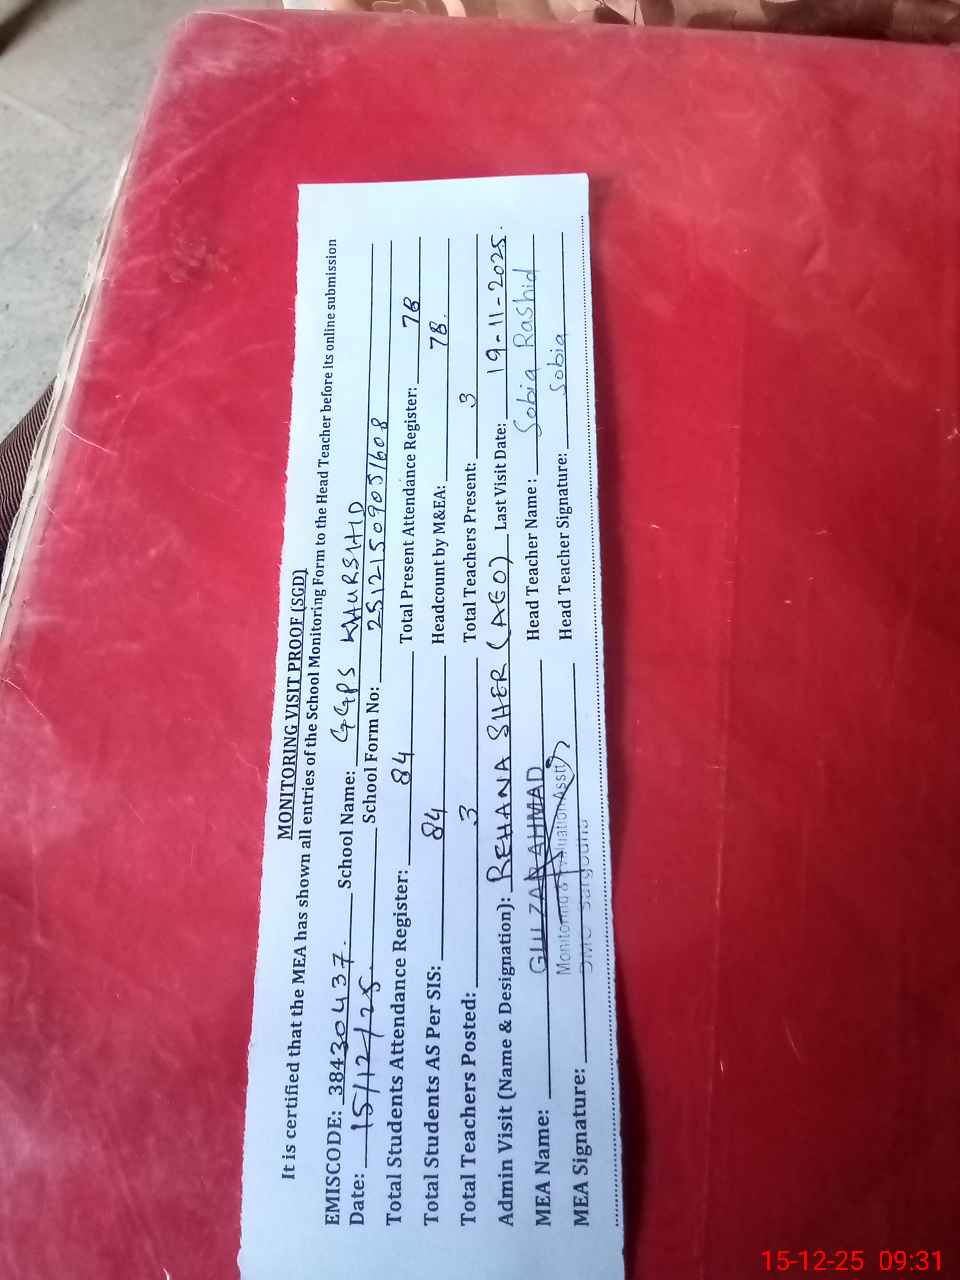 MONITORING VISIT PROOF (SGD)
It is certified that the MEA has shown all entries of the School Monitoring Form to the Head Teacher before its online submission
EMISCODE: 38430437. School Name: GGPS KHURSHID
Date: 15/12/25. School Form No: 2512150909051608
Total Students Attendance Register: 84 Total Present Attendance Register: 78
Total Students AS Per SIS: 84 Headcount by M&EA: 78.
Total Teachers Posted: 3 Total Teachers Present: 3
Admin Visit (Name & Designation): REHANA SHER (AEO) Last Visit Date: 19-11-2025.
MEA Name: GULZAR AHMAD Head Teacher Name: Sobia Rashid
Monitoring & Evaluation Asstt
MEA Signature: DMO Sargodha Head Teacher Signature: Sobia
15-12-25 09:31